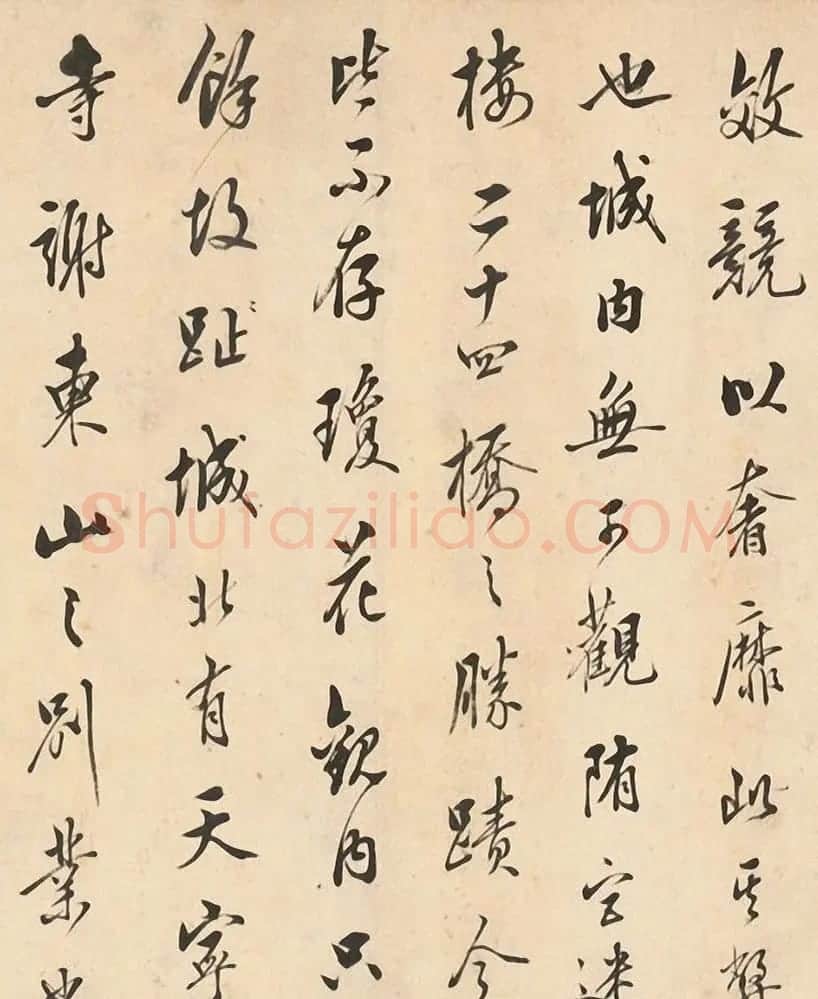 效競以奢靡此其弊
也城內無可觀隋宮迷
樓二十四橋之勝蹟今
皆不存瓊花觀內只
餘故趾城北有天寧
寺謝東山之別業也
Shufazilidao.COM